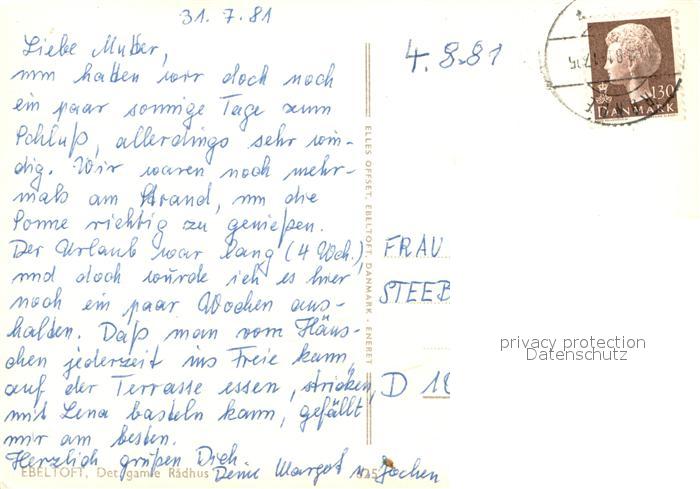 31. 7. 81
Liebe Mutter,
nun hatten wir doch noch
ein paar sonnige Tage zum
Schluß, allerdings sehr win-
dig. Wir waren noch mehr-
mals am Strand, um die
Sonne richtig zu genießen.
Der Urlaub war lang (4 Wch.),
und doch würde ich es hier
noch ein paar Wochen aus-
halten. Daß man vom Häus-
chen jederzeit ins Freie kann,
auf der Terrasse essen, stricken,
mit Lena basteln kann, gefällt
mir am besten.
Herzlich grüßen Dich
Deine Margot u. Jochen
EBELTOFT, Det gamle Rådhus
325
ELLES OFFSET, EBELTOFT, DANMARK - ENERET
4. 8. 81
130
DANMARK
FRAU
STEEB
D 18
privacy protection
Datenschutz